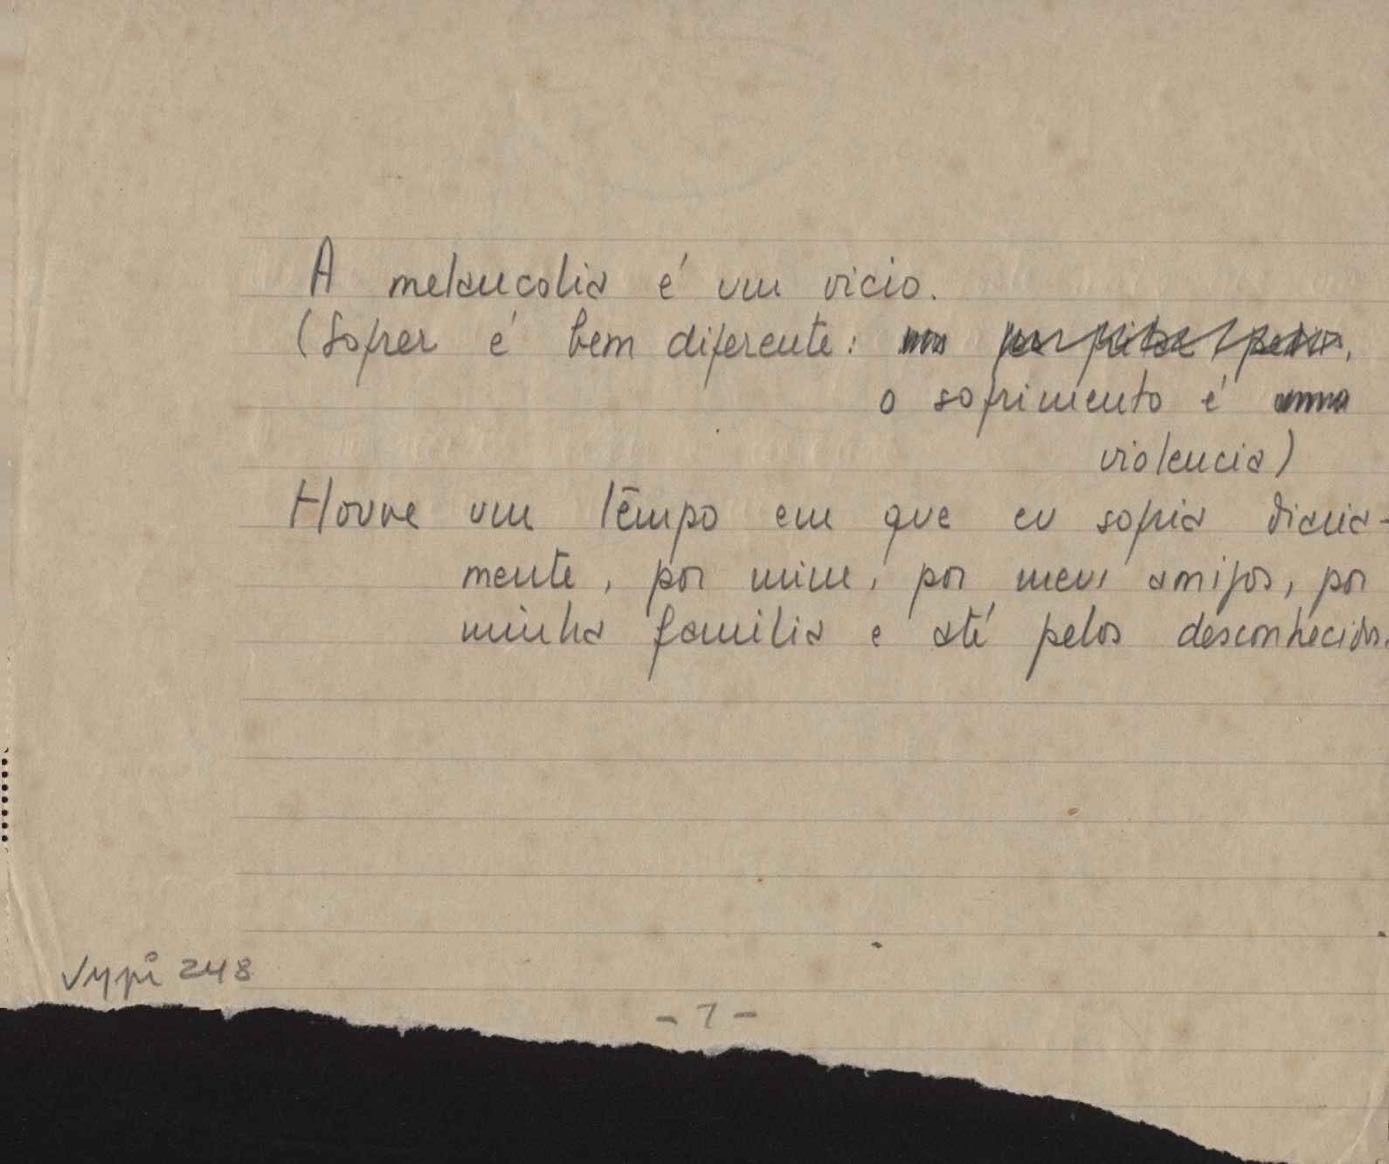 A melancolia é um vicio.
(Sofrer é bem diferente:
o sofrimento é uma
violencia)
Houve um tempo em que eu sofria diaria-
mente, por mim, por meus amigos, por
minha familia e até pelos desconhecidos.
248
- 7 -